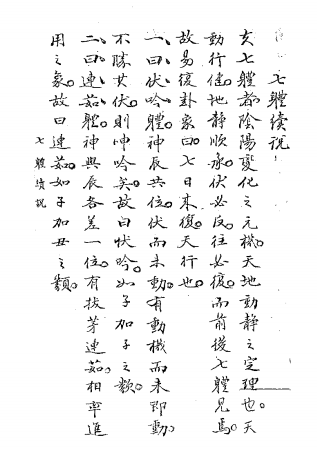 七體續說
夫七體者。陰陽變化之元機。天地動靜之定理也。天
動行健。地靜順承。伏必反。往必復。而前後七體見焉。
故易復卦彖曰。七日來復。天行也。
一、曰伏吟體。神辰共位。伏而未動。有動機而未即動。
不勝其伏。則呻吟矣。故曰伏吟。如子加子之類。
二、曰連茹體。神與辰各差一位。有拔茅連茹。相率進
用之象。故曰連茹。如子加丑之類。
七體續說